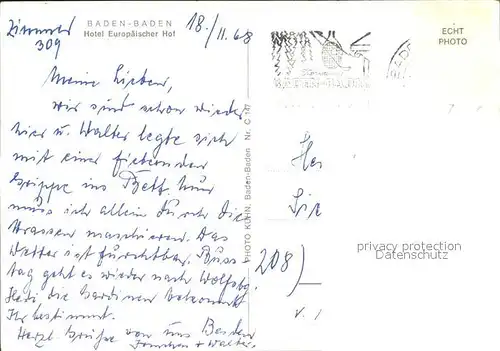 Zimmer
309
BADEN-BADEN
Hotel Europäischer Hof
18./11.68
ECHT
PHOTO
Meine Lieben,
wir sind schon wieder
hier u. Walter legte sich
mit einer fiebernden
Grippe ins Bett. Nun
muss ich allein durch die
Strassen marschieren. Das
Wetter ist furchtbar. Buss-
tag geht es wieder nach Wolfsbg.
Hedi die Gardinen bekommt
Ihr bestimmt.
Herzl. Grüsse von uns Beiden
+ Walter.
PHOTO KÜHN, Baden-Baden Nr. C 147
208)
privacy protection
Datenschutz